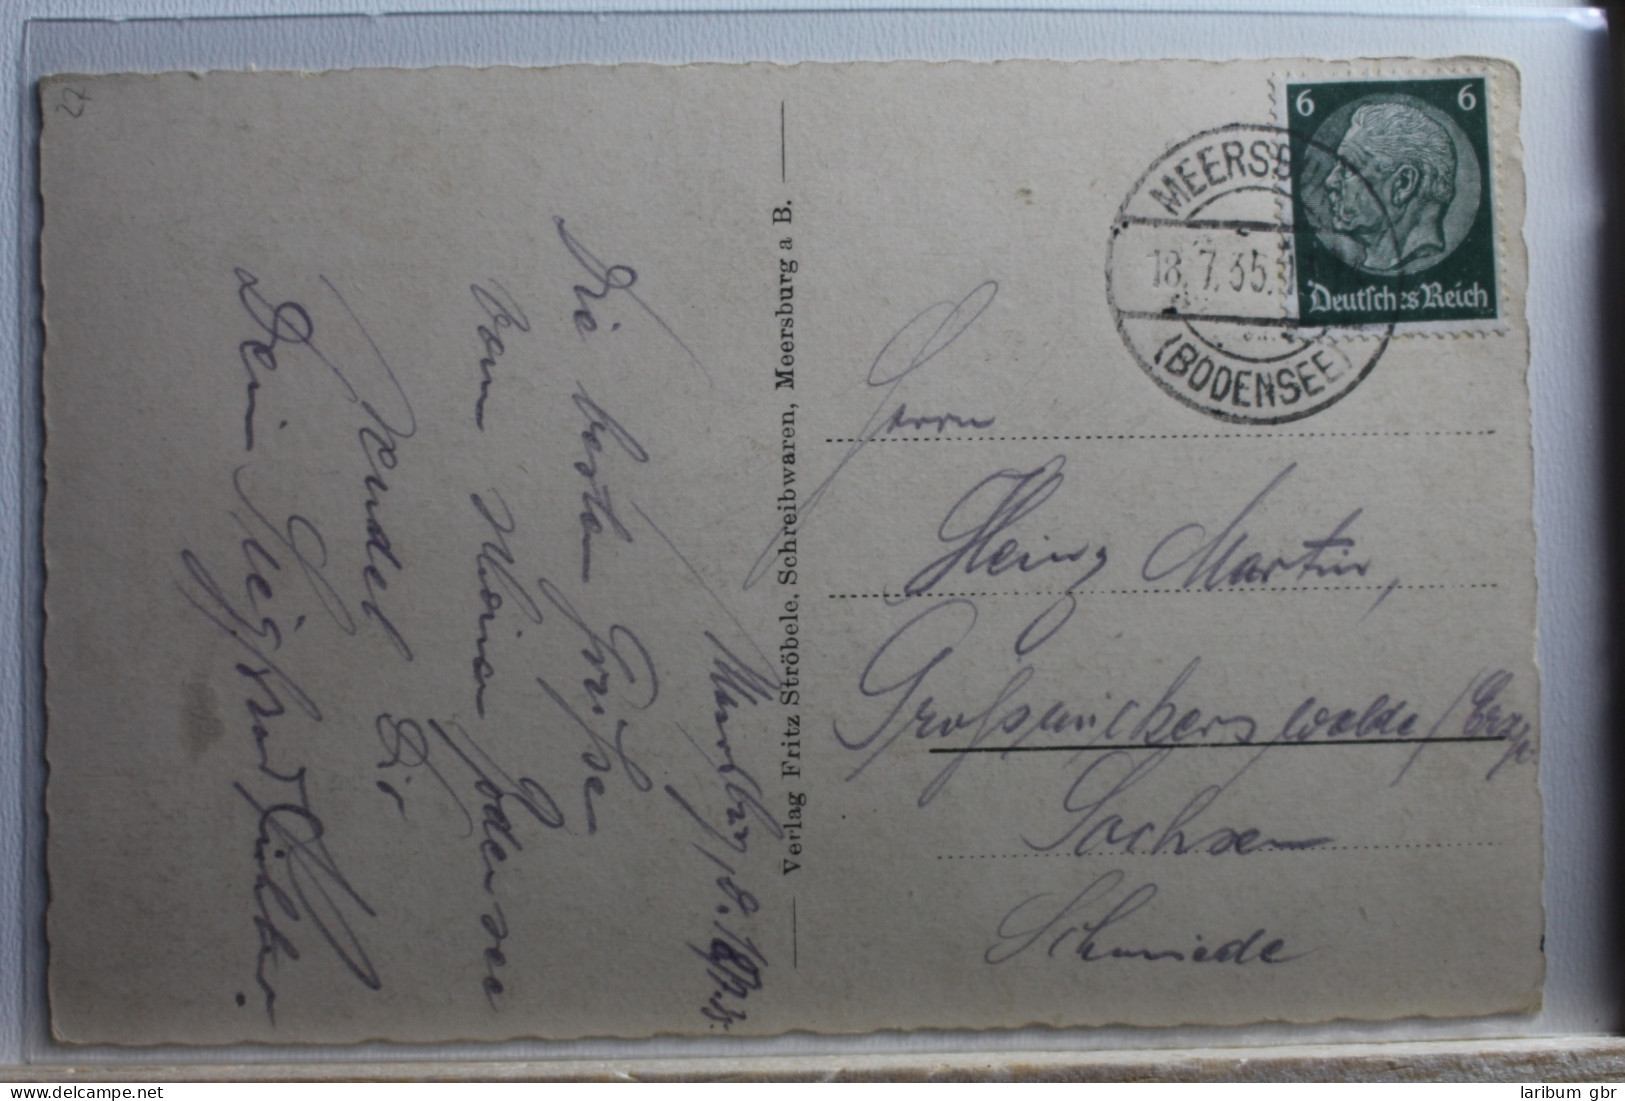 27
Meersburg, d. 18.7.35.
Die besten Grüße
vom schönen Bodensee
sendet Dir
Dein
Verlag Fritz Ströbele, Schreibwaren, Meersburg a B.
6 6
Deutsches Reich
MEERSBURG
18.7.35.
(BODENSEE)
Herrn
Heinz Martin,
Großrückerswalde / Erzg.
Sachsen
Schmiede
laribum gbr